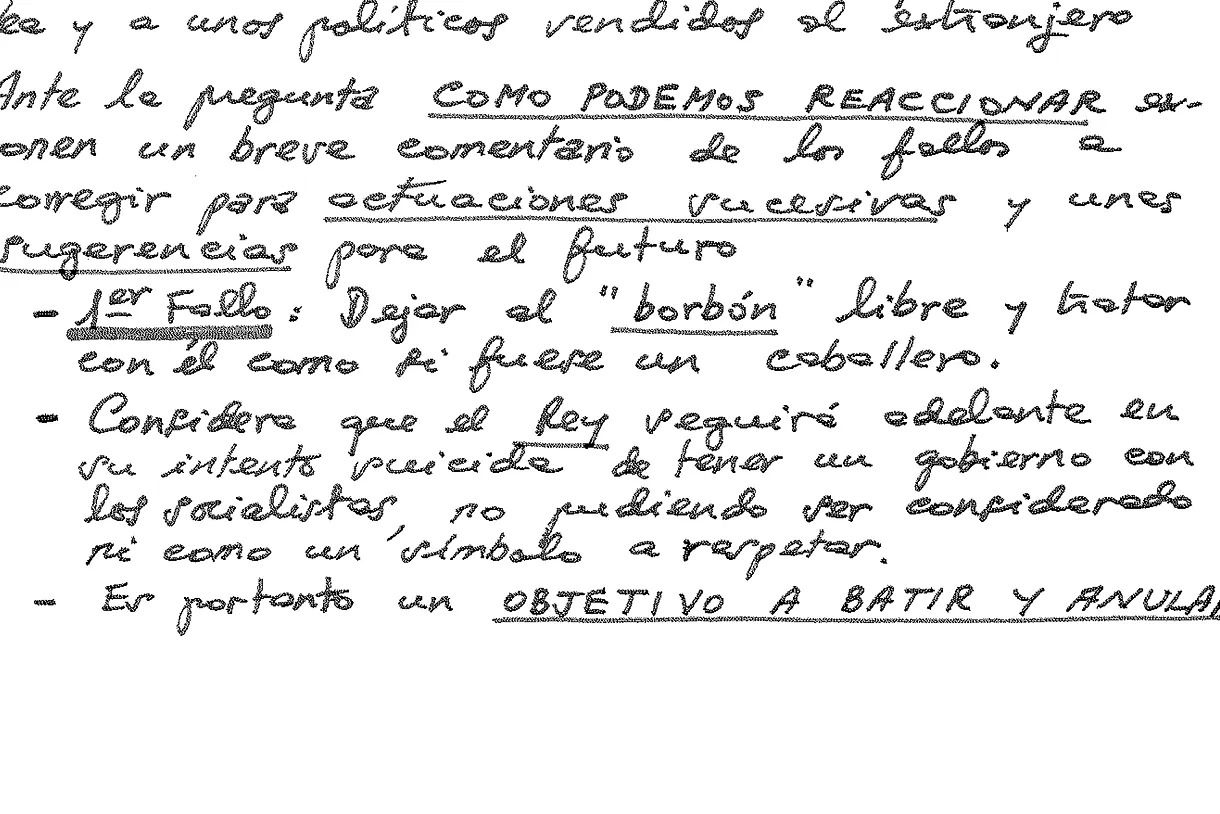 ea y a unos políticos vendidos al extranjero
Ante la pregunta COMO PODEMOS REACCIONAR ex-
onen un breve comentario de los fallos a
corregir para actuaciones sucesivas y unas
sugerencias para el futuro
- 1er Fallo: Dejar al "borbón" libre y tratar
con él como si fuese un caballero.
- Considera que el Rey seguirá adelante en
su intento suicida de tener un gobierno con
los socialistas, no pudiendo ser considerado
ni como un símbolo a respetar.
- Es portanto un OBJETIVO A BATIR Y ANULAR